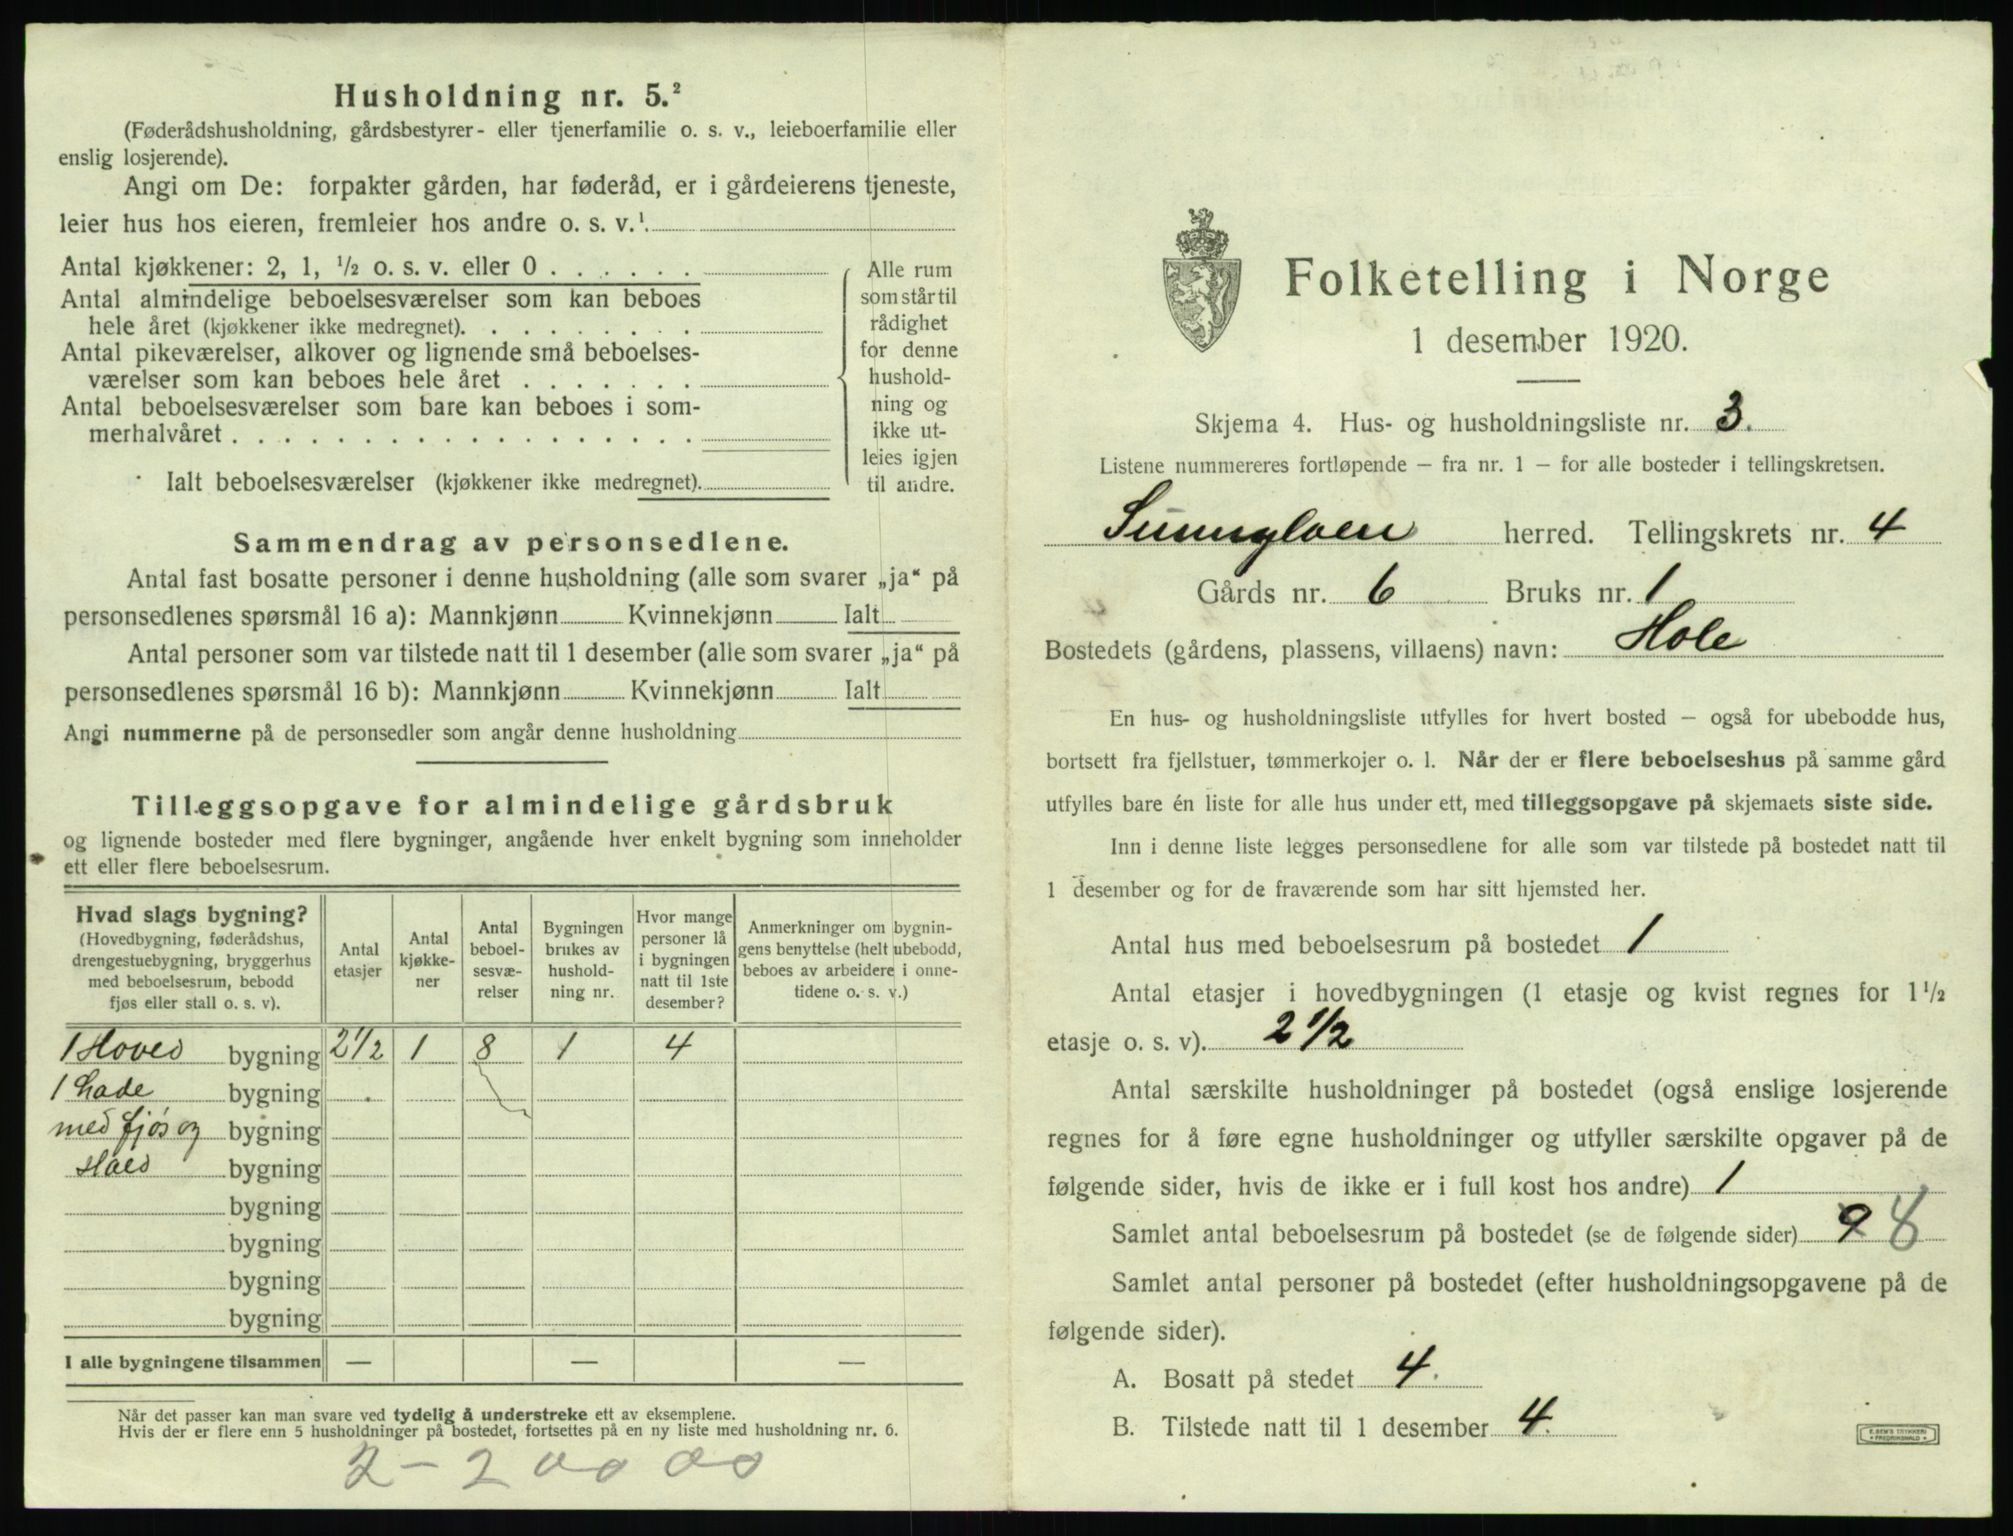 Husholdning nr. 5.²
(Føderådshusholdning, gårdsbestyrer- eller tjenerfamilie o. s. v., leieboerfamilie eller
enslig losjerende).
Angi om De: forpakter gården, har føderåd, er i gårdeierens tjeneste,
leier hus hos eieren, fremleier hos andre o. s. v.¹
Antal kjøkkener: 2, 1, ½ o. s. v. eller 0
Antal almindelige beboelsesværelser som kan beboes
hele året (kjøkkener ikke medregnet).
Antal pikeværelser, alkover og lignende små beboelses-
værelser som kan beboes hele året
Antal beboelsesværelser som bare kan beboes i som-
merhalvåret
Ialt beboelsesværelser (kjøkkener ikke medregnet).
Alle rum
som står til
rådighet
for denne
hushold-
ning og
ikke ut-
leies igjen
til andre.
Sammendrag av personsedlene.
Antal fast bosatte personer i denne husholdning (alle som svarer „ja“ på
personsedlenes spørsmål 16 a): Mannkjønn Kvinnekjønn Ialt
Antal personer som var tilstede natt til 1 desember (alle som svarer „ja“ på
personsedlenes spørsmål 16 b): Mannkjønn Kvinnekjønn Ialt
Angi nummerne på de personsedler som angår denne husholdning
Tilleggsopgave for almindelige gårdsbruk
og lignende bosteder med flere bygninger, angående hver enkelt bygning som inneholder
ett eller flere beboelsesrum.
Hvad slags bygning?
(Hovedbygning, føderådshus,
drengestuebygning, bryggerhus
med beboelsesrum, bebodd
fjøs eller stall o. s. v).
Antal
etasjer
Antal
kjøkke-
ner
Antal
beboel-
sesvæ-
relser
Bygningen
brukes av
hushold-
ning nr.
Hvor mange
personer lå
i bygningen
natt til 1ste
desember?
Anmerkninger om bygnin-
gens benyttelse (helt ubebodd,
beboes av arbeidere i onne-
tidene o. s. v.)
1 Hoved bygning 2½ 1 8 1 4
1 Lade bygning
med fjøs og bygning
Stald bygning
bygning
bygning
bygning
bygning
I alle bygningene tilsammen — — —
Når det passer kan man svare ved tydelig å understreke ett av eksemplene.
Hvis der er flere enn 5 husholdninger på bostedet, fortsettes på en ny liste med husholdning nr. 6.
2 - 2 00 00
Folketelling i Norge
1 desember 1920.
Skjema 4. Hus- og husholdningsliste nr. 3.
Listene nummereres fortløpende — fra nr. 1 — for alle bosteder i tellingskretsen.
Sunnylven herred. Tellingskrets nr. 4
Gårds nr. 6 Bruks nr. 1
Bostedets (gårdens, plassens, villaens) navn: Hole
En hus- og husholdningsliste utfylles for hvert bosted — også for ubebodde hus,
bortsett fra fjellstuer, tømmerkojer o. l. Når der er flere beboelseshus på samme gård
utfylles bare én liste for alle hus under ett, med tilleggsopgave på skjemaets siste side.
Inn i denne liste legges personsedlene for alle som var tilstede på bostedet natt til
1 desember og for de fraværende som har sitt hjemsted her.
Antal hus med beboelsesrum på bostedet 1
Antal etasjer i hovedbygningen (1 etasje og kvist regnes for 1½
etasje o. s. v). 2½
Antal særskilte husholdninger på bostedet (også enslige losjerende
regnes for å føre egne husholdninger og utfyller særskilte opgaver på de
følgende sider, hvis de ikke er i full kost hos andre) 1
Samlet antal beboelsesrum på bostedet (se de følgende sider) 9 8
Samlet antal personer på bostedet (efter husholdningsopgavene på de
følgende sider).
A. Bosatt på stedet 4.
B. Tilstede natt til 1 desember 4.
E. SEM'S TRYKKERI
FREDRIKSHALD